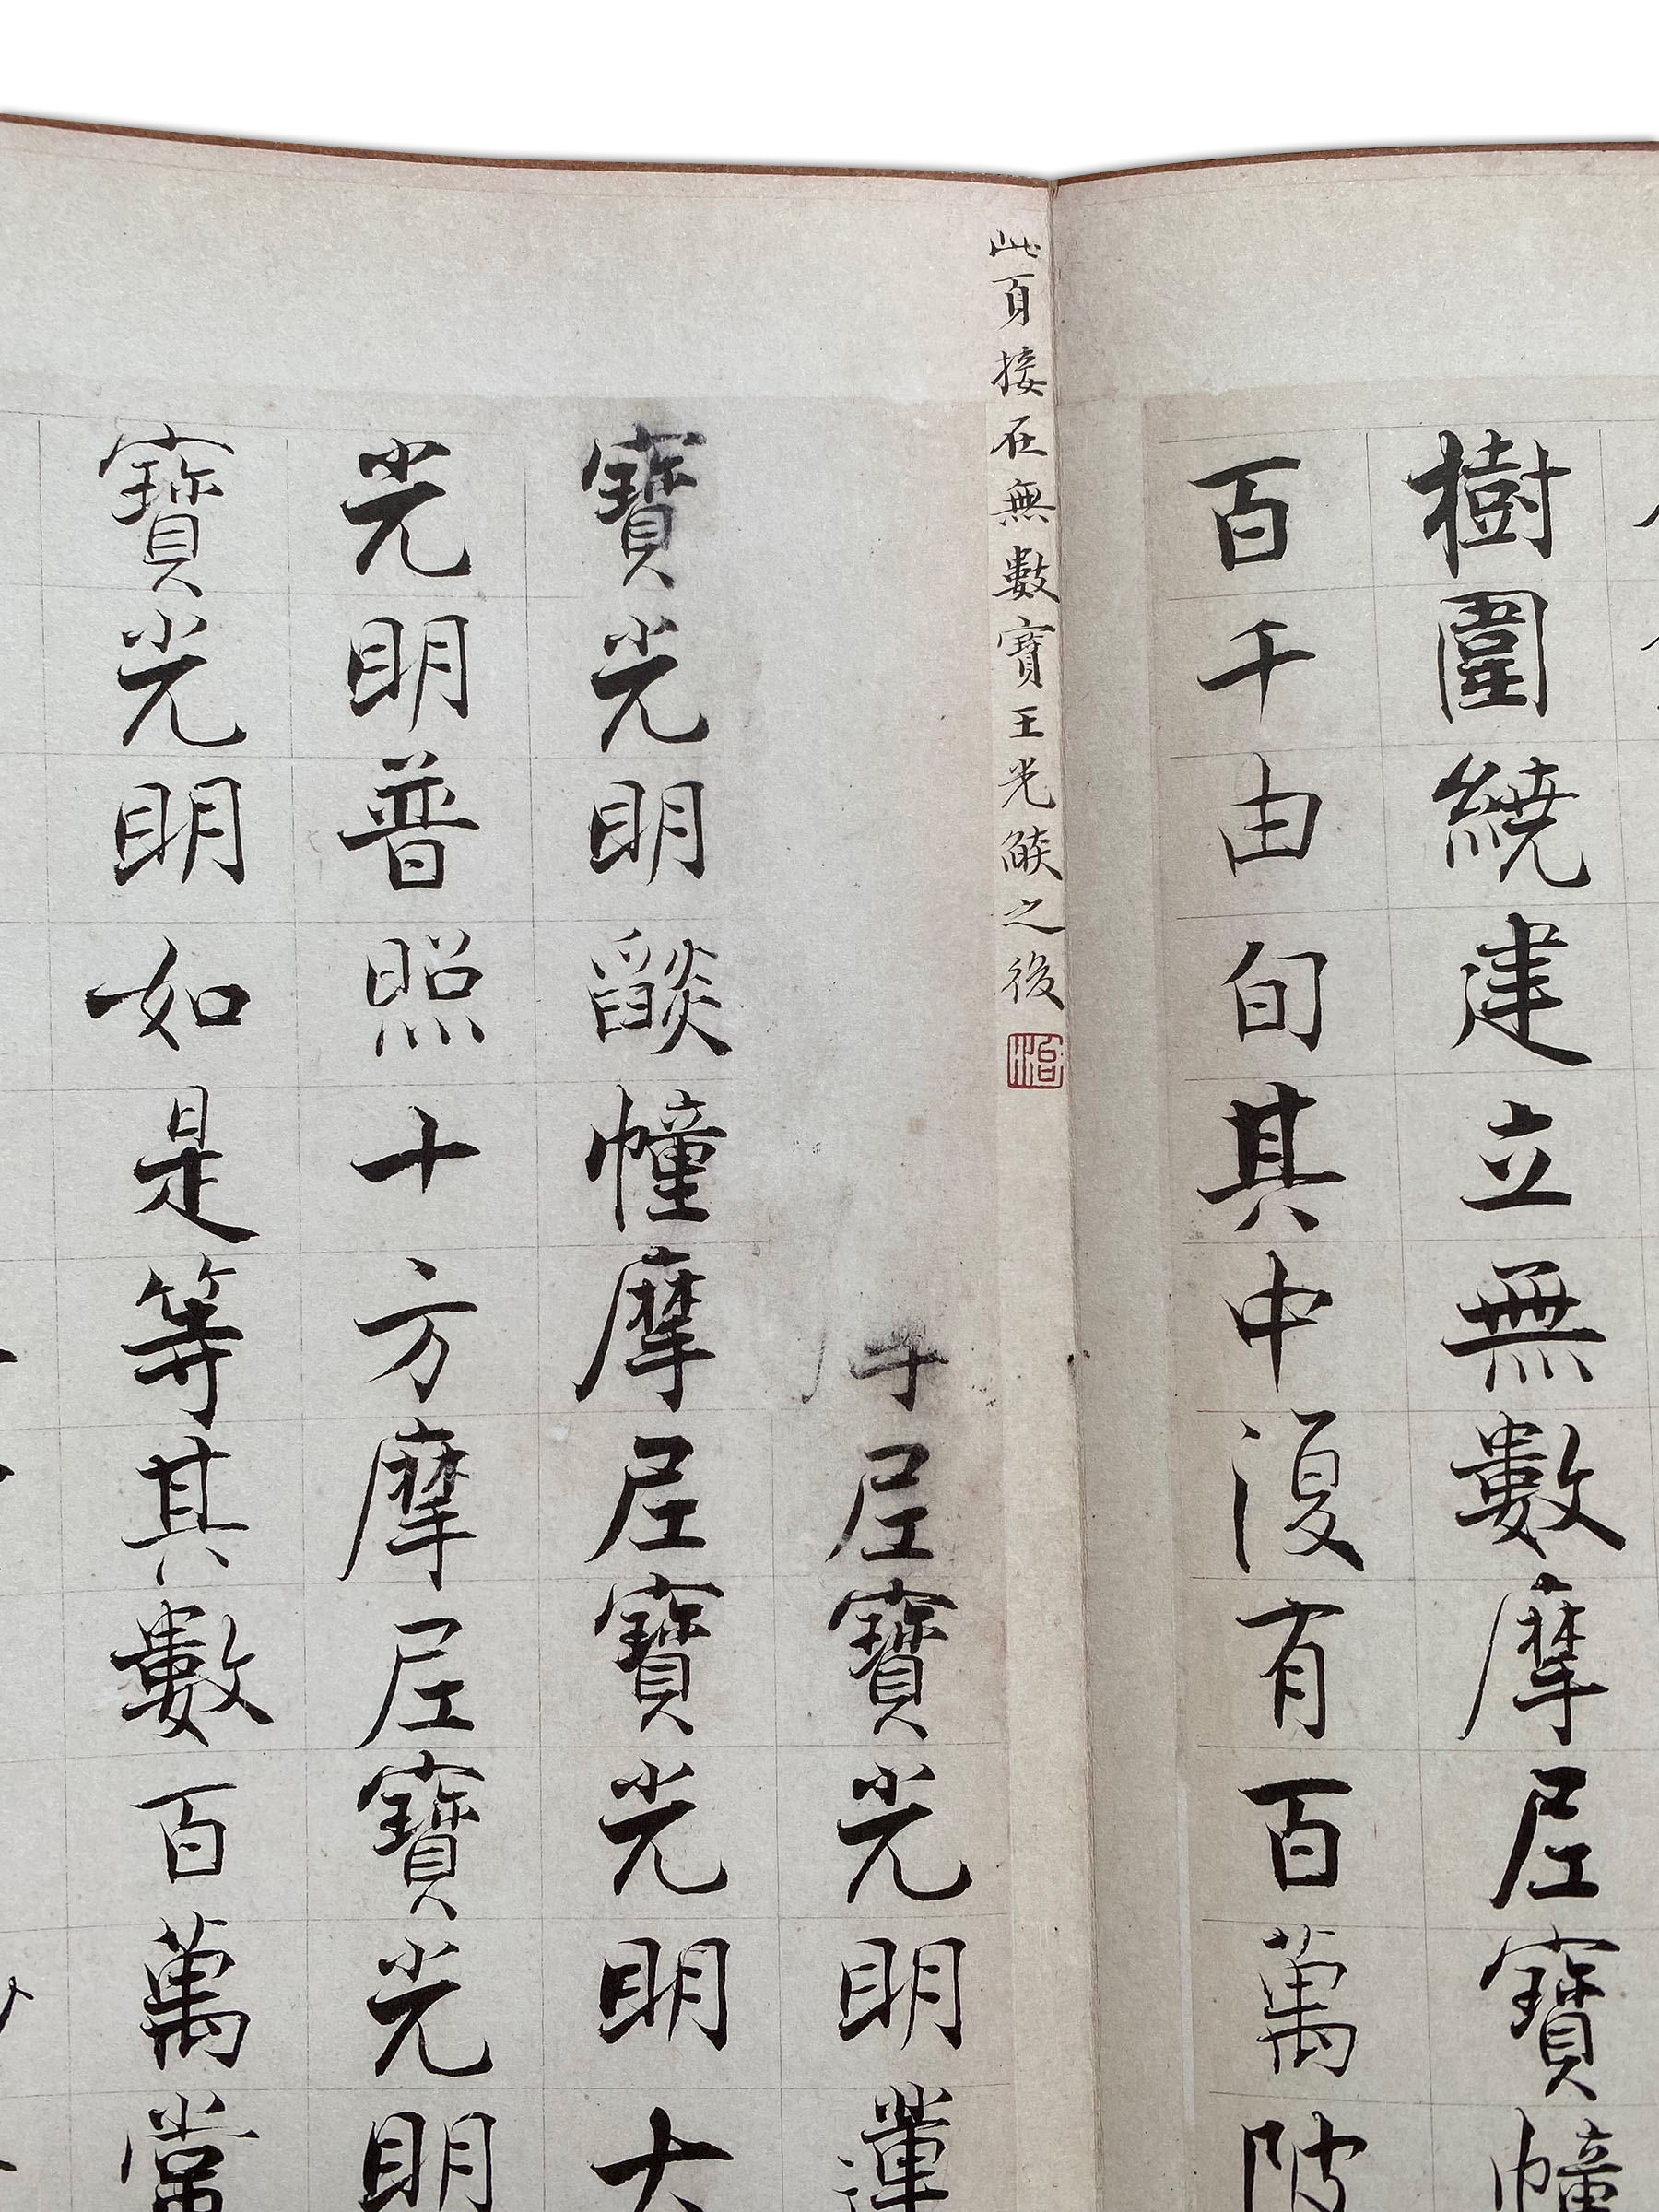 樹圍繞建立無數摩尼寶幢
百千由旬其中復有百萬陂
此頁接在無數寶王光燄之後
尼寶光明蓮
寶光明燄幢摩尼寶光明大
光明普照十方摩尼寶光明
寶光明如是等其數百萬常